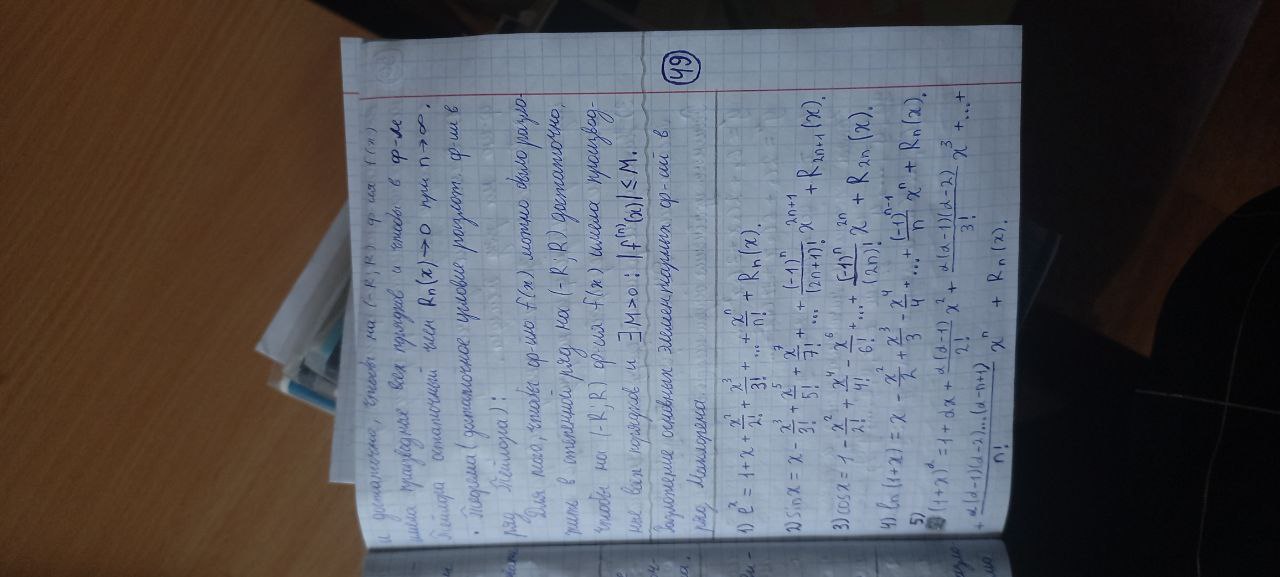 и достаточно, чтобы на (-R; R) ф-ия f(x)
имела производные всех порядков и чтобы в ф-ле
Тейлора остаточный член Rn(x)→0 при n→∞.
• Теорема (достаточное условие разлож. ф-ии в
ряд Тейлора):
Для того, чтобы ф-ию f(x) можно было разло-
жить в степенной ряд на (-R; R) достаточно,
чтобы на (-R; R) ф-ия f(x) имела производ-
ные всех порядков и ∃M>0: |f⁽ⁿ⁾(x)| ≤ M.
49
Разложение основных элементарных ф-ий в
ряд Маклорена.
1) eˣ = 1+x+x²/2!+x³/3!+...+xⁿ/n!+Rn(x).
2) sinx = x - x³/3! + x⁵/5! + x⁷/7! + ... + (-1)ⁿ/(2n+1)! x²ⁿ⁺¹ + R2n+1(x).
3) cosx = 1 - x²/2! + x⁴/4! - x⁶/6! + ... + (-1)ⁿ/(2n)! x²ⁿ + R2n(x).
4) ln(1+x) = x - x²/2 + x³/3 - x⁴/4 + ... + (-1)ⁿ⁻¹/n xⁿ + Rn(x).
5) (1+x)^α = 1 + αx + α(α-1)/2! x² + α(α-1)(α-2)/3! x³ + ... +
+ α(α-1)(α-2)...(α-n+1)/n! xⁿ + Rn(x).